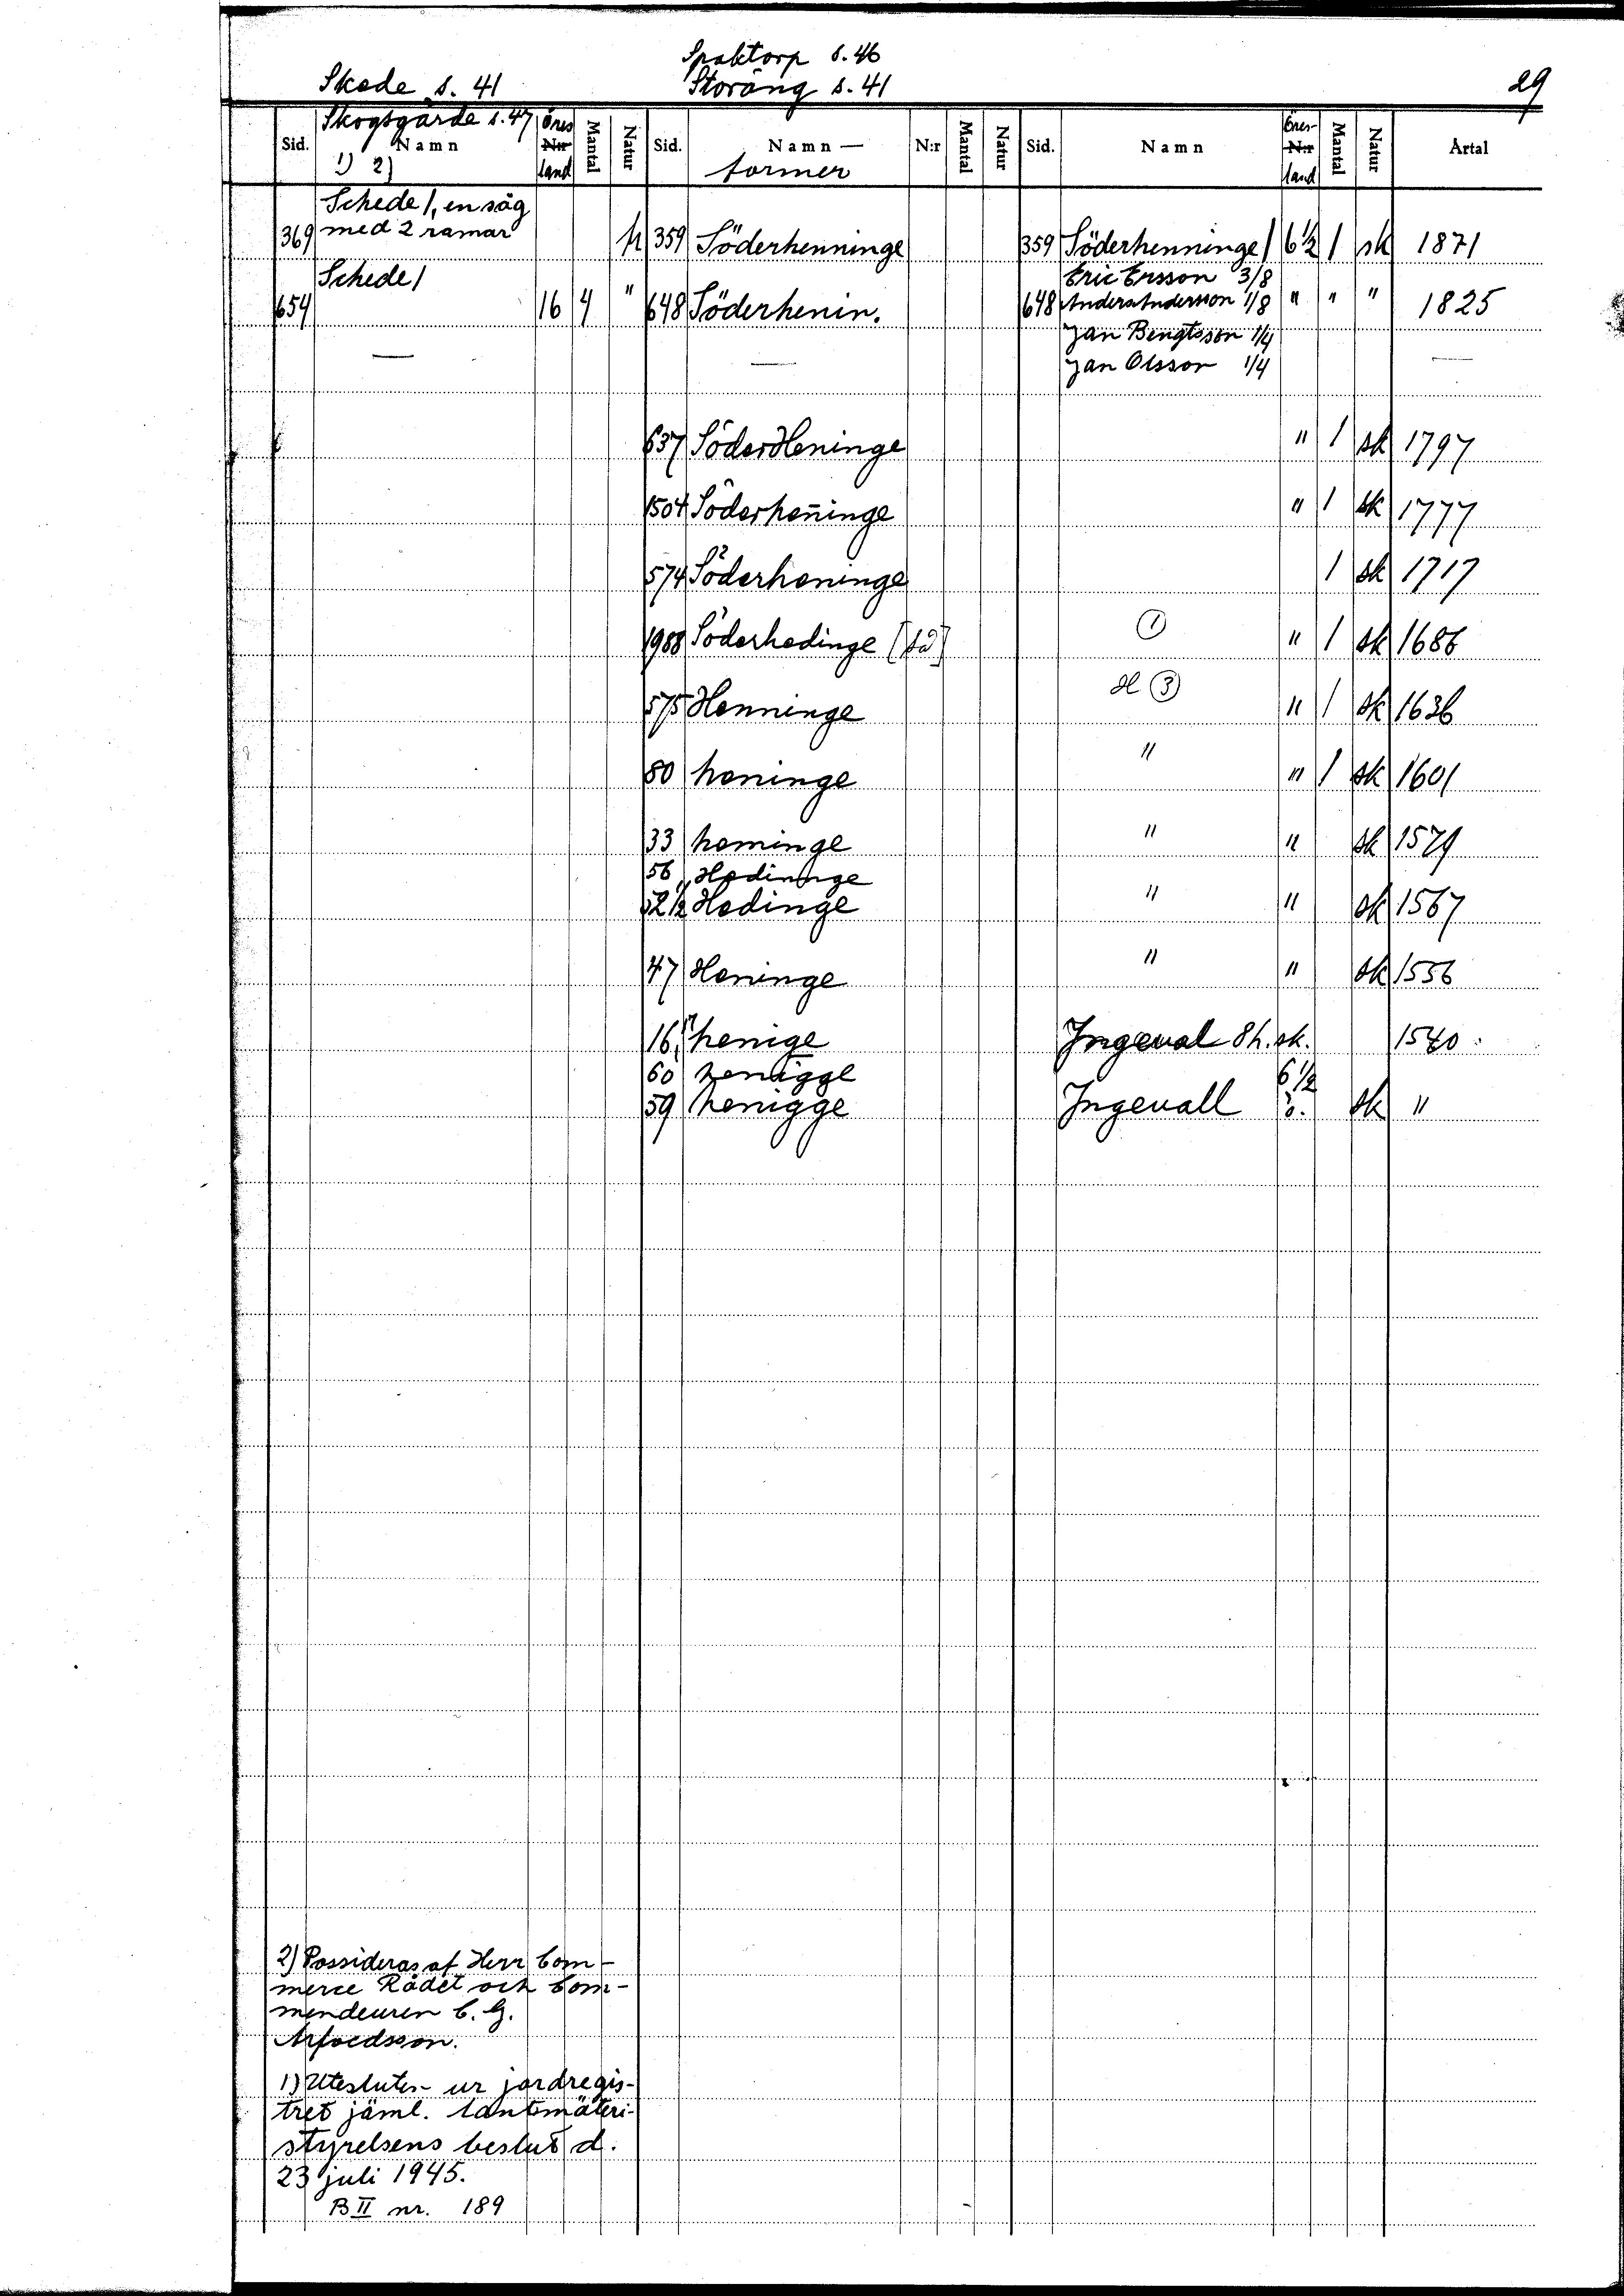 Spaktorp s. 46
Skede s. 41 Storäng s. 41 29
Skogsgärde s. 47
Sid. Namn Öres N:r land Mantal Natur Sid. Namn — N:r Mantal Natur Sid. Namn Öres- N:r land Mantal Natur Årtal
1) 2) former
Schede 1, en såg
369 med 2 ramar fr 359 Söderhenninge 359 Söderhenninge 1 6½ 1 sk 1871
Schede 1 Eric Ersson 3/8
654 16 4 " 648 Söderhenin. 648 Anders Andersson 1/8 " " " 1825
Jan Bengtsson 1/4
— — Jan Olsson 1/4 —
637 SöderHeninge " 1 sk 1797
1504 Söderhen̄inge " 1 sk 1777
574 Söderheninge 1 sk 1717
1988 Söderhedinge 1 " 1 sk 1686
575 Henninge H 3 " 1 sk 1636
80 heninge " " 1 sk 1601
33 heminge " " sk 1579
56 Hedininge
52½ Hedinge " " sk 1567
47 Heninge " " sk 1556
16 henige Ingeval 8 h. sk. 1540
60 henigge 6½
59 henigge Ingevall ö. sk "
2) Possideras af Herr Com-
merce Rådet och Com-
mendeuren C. G.
Arfvedsson.
1) Uteslutes ur jordregis-
tret jäml. lantmäteri-
styrelsens beslut d.
23 juli 1945.
B II nr. 189